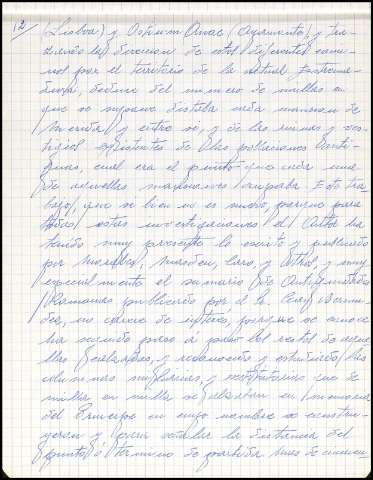 12
(Lisboa) y Ostium Anae (Ayamonte) y tra-
zando la direccion de estos diferentes cami-
nos por el territorio de la actual Extrema-
dura, deduce del numero de millas en
que se supone distaba cada mansion de
Merida y entre sí, y de las ruinas y ves-
tigios existentes de otras poblaciones anti-
guas, cual era el punto que cada una
de aquellas mansiones ocupaba. Este tra-
bajo, que si bien no es nuevo porque para
todas estas investigaciones el Autor ha
tenido muy presente lo escrito y publicado
por Morales, Masdeu, Caro, y otros, y muy
especialmente el sumario de Antigüedades
Romanas publicado por el Sr. Cean Bermu-
dez, no carece de interes, porque se conoce
ha seguido paso a paso los restos de aque-
llas calzadas, y reconocido y estudiado las
columnas miliarias, y que de
milla en milla se elevaban en memoria
del Principe en cuyo nombre se construy-
yeron y para señalar la distancia del
punto ó término de partida, unas de